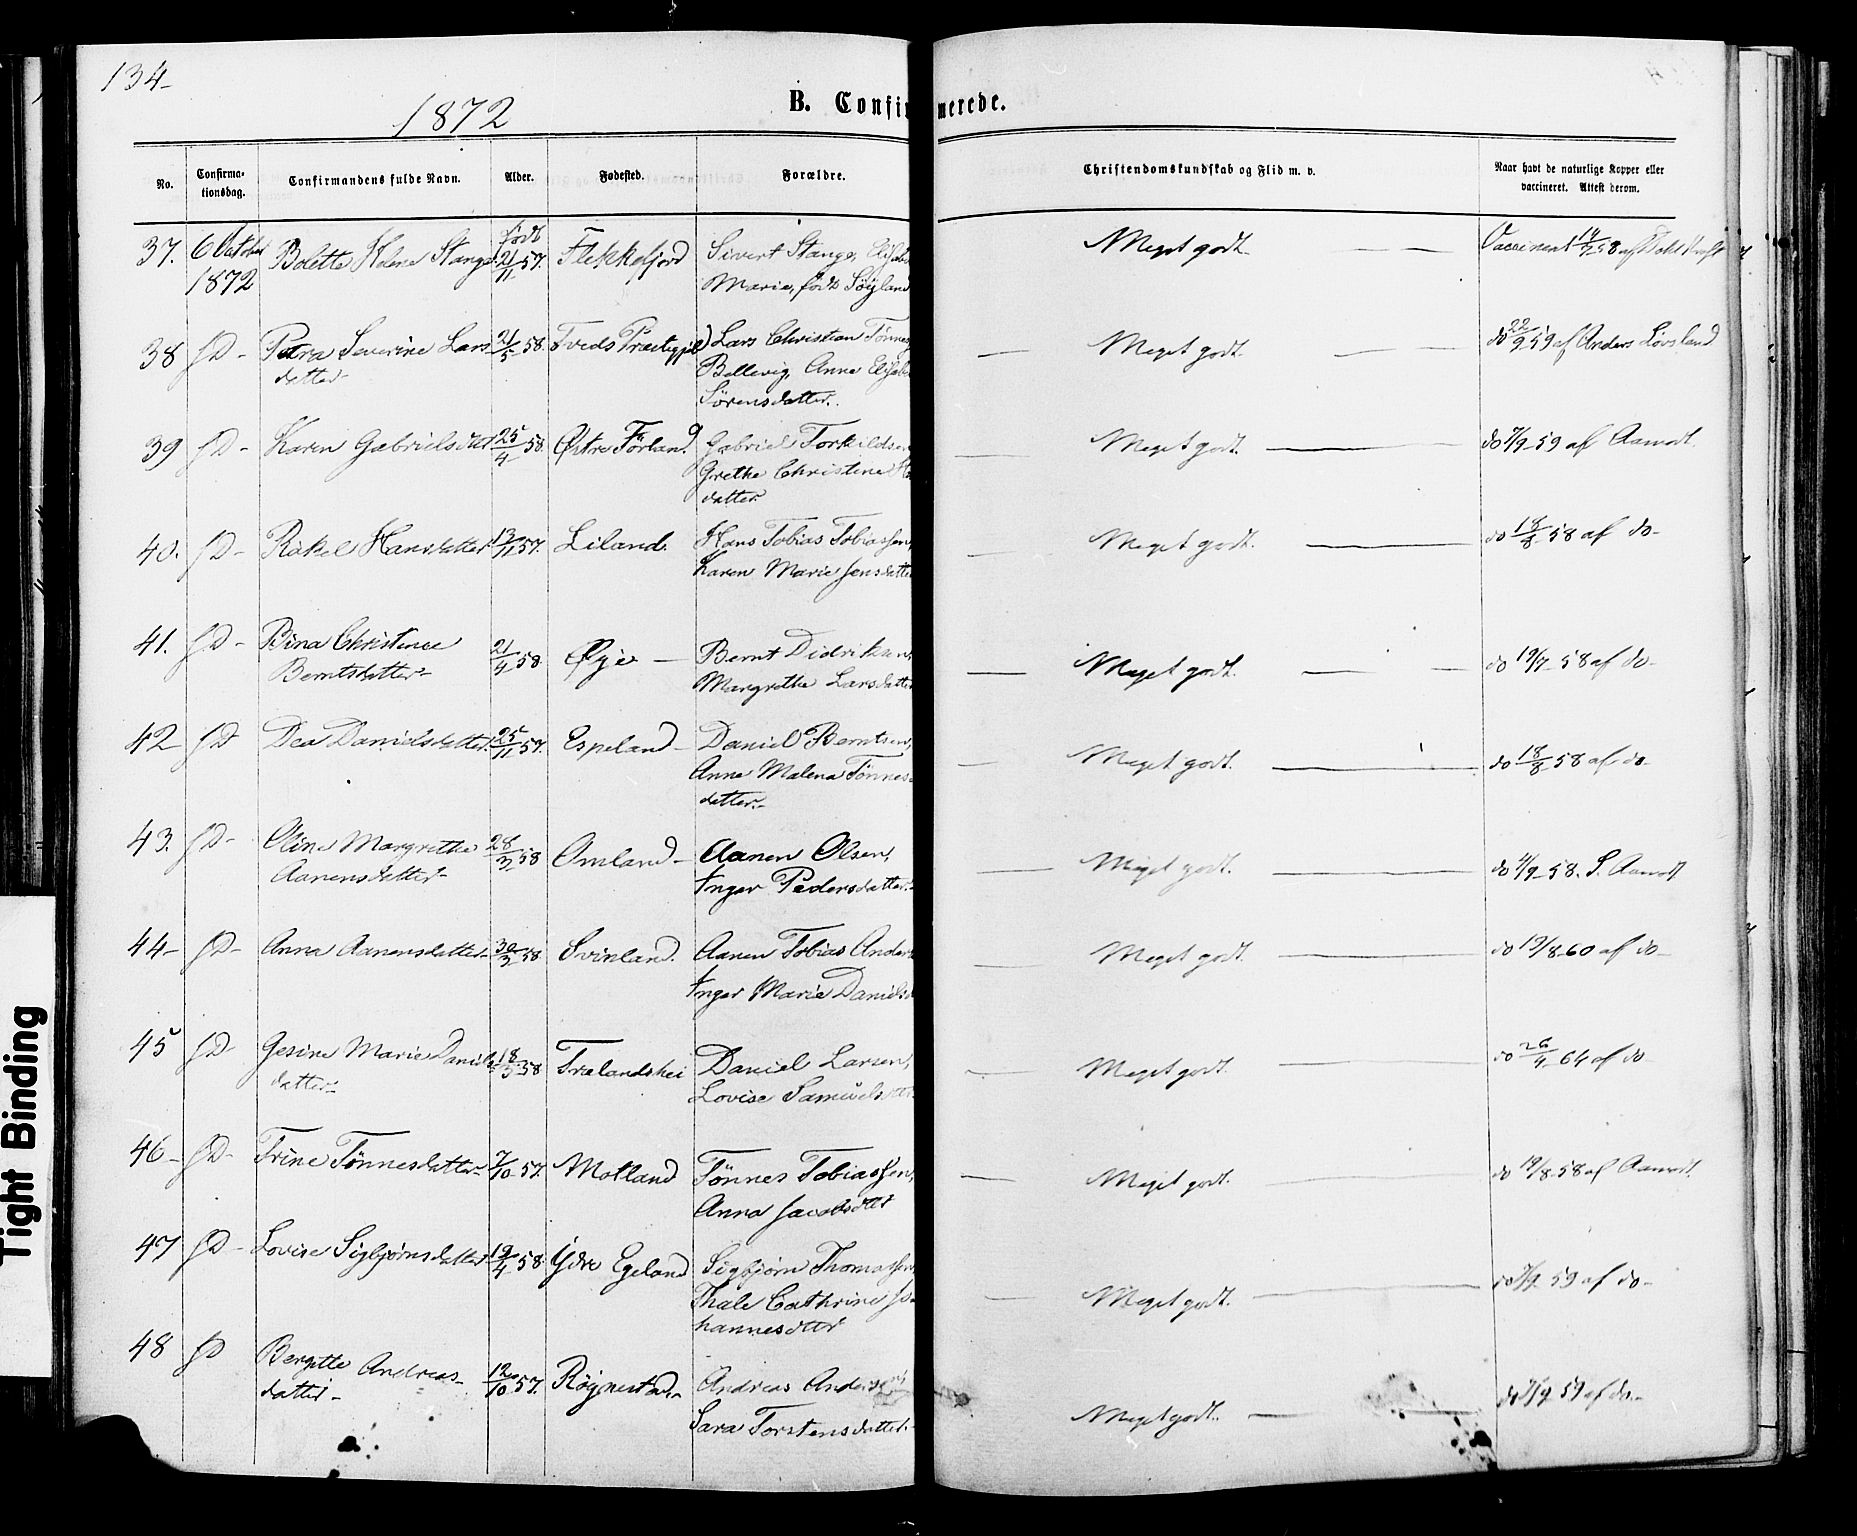 134-
1872
B. Confirmerede.
No. Confirma-tionsdag. Confirmandens fulde Navn. Alder. Fødested. Forældre. Christendomskundskab og Flid m. v. Naar havt de naturlige Kopper eller vaccineret. Attest derom.
37. 6 October Bolette Helene Stange født 21/11 57. Flekkefjord Sivert Stange, Elisabet Meget godt. Vaccineret 14/7 58 af
1872 Marie, født Søyland
38 sD- Petra Severine Lars- 21/5 58. Tveds Præstegjeld Lars Christian Tønnes Meget godt. do 22/9 59 af Anders Lövsland
datter- Bellevig, Anne Elisabet
Sørensdatter.
39 sD- Karen Gabrielsdtter 25/4 58. Østre Förland. Gabriel Torkildsen Meget godt. do 7/9 59 af Aamodt.
Grethe Christine
datter
40. sD- Rakel Hansdatter 13/11 57. Liland. Hans Tobias Tobiassen, Meget godt. do 18/8 58 af do-
Karen Marie Jensdatter
41. sD- Bina Christence 21/4 58. Øye- Bernt Didriksen, Meget godt. do 19/7 58 af do-
Berntsdatter- Margrethe Larsdatter
42 sD Dea Danielsdatter. 25/11 57. Espeland- Daniel Berntsen, Meget godt. do 18/8 58 af do-
Anne Malena Tønnes
datter.-
43. sD- Oline Margrethe 28/3 58 Omland- Aanen Olsen, Meget godt. do 4/9 58. S. Aamodt
Aanensdatter- Inger Pedersdatter.-
44- sD- Anna Aanensdatter- 30/3 58 Svinland. Aanen Tobias Anders Meget godt. do 19/8 60 af do-
Inger Marie Daniels
45 sD- Gesine Marie Daniels 18/5 58 Trælandshei Daniel Larsen, Meget godt. do 26/4 64 af do-
datter- Lovise Samuelsdtr.
46- sD- Trine Tönnesdatter- 7/10 57. Motland Tönnes Tobiassen, Meget godt. do 19/8 58 af Aamodt.
Anna Jacobsdtter
47 sD- Lovise Sigbjørnsdatter 19/4 58. Ydre Egeland Sigbjørn Thomassen, Meget godt. do 7/9 59 af do-
Thale Cathrine Jo-
hannesdtter
48 sD Bergitte Andreas- 12/10 57. Røgnestad- Andreas Andersen Meget godt. do 7/9 59 af do-
datter- Sara Torstensdatter.-
Tight Binding